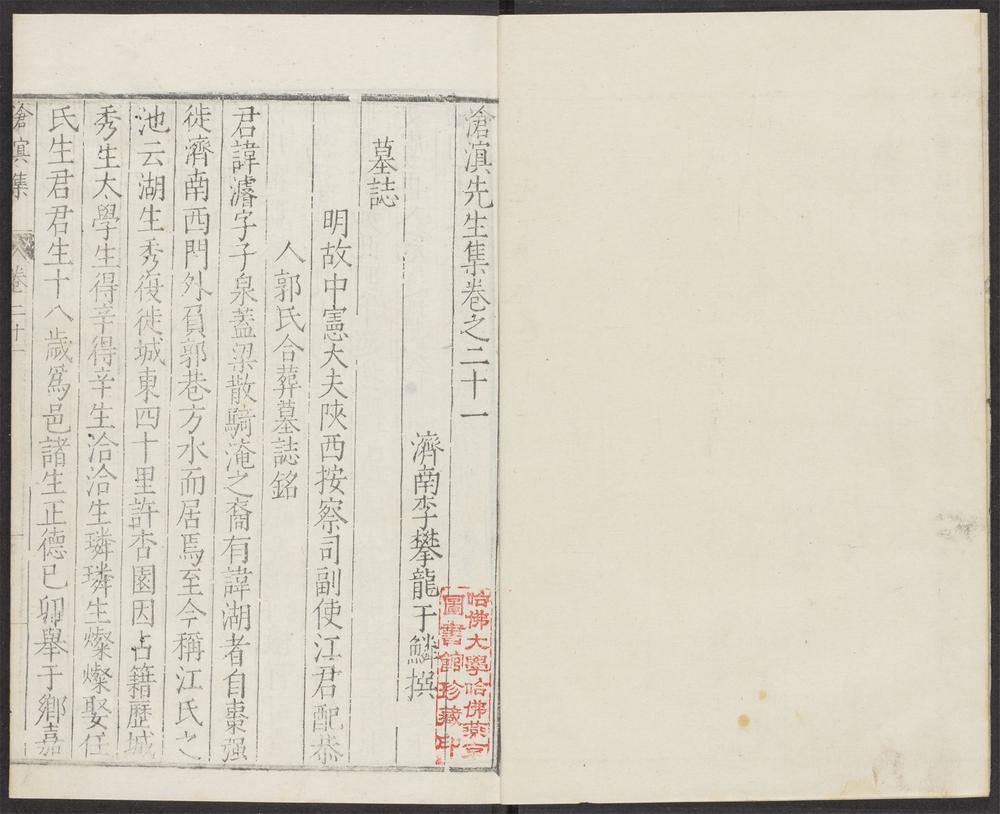 滄溟先生集卷之二十一
濟南李攀龍于鱗撰
墓誌
明故中憲大夫陝西按察司副使江君配恭
人郭氏合葬墓誌銘
君諱濬字子泉蓋梁散騎淹之裔有諱湖者自棗强
徙濟南西門外負郭巷方水而居焉至今稱江氏之
池云湖生秀復徙城東四十里許杏園因占籍歷城
秀生太學生得辛得辛生洽洽生璘璘生燦燦娶任
氏生君君生十八歲爲邑諸生正德己卯舉于鄉嘉
滄溟集 卷二十一
哈佛大學哈佛燕京
圖書館珍藏印